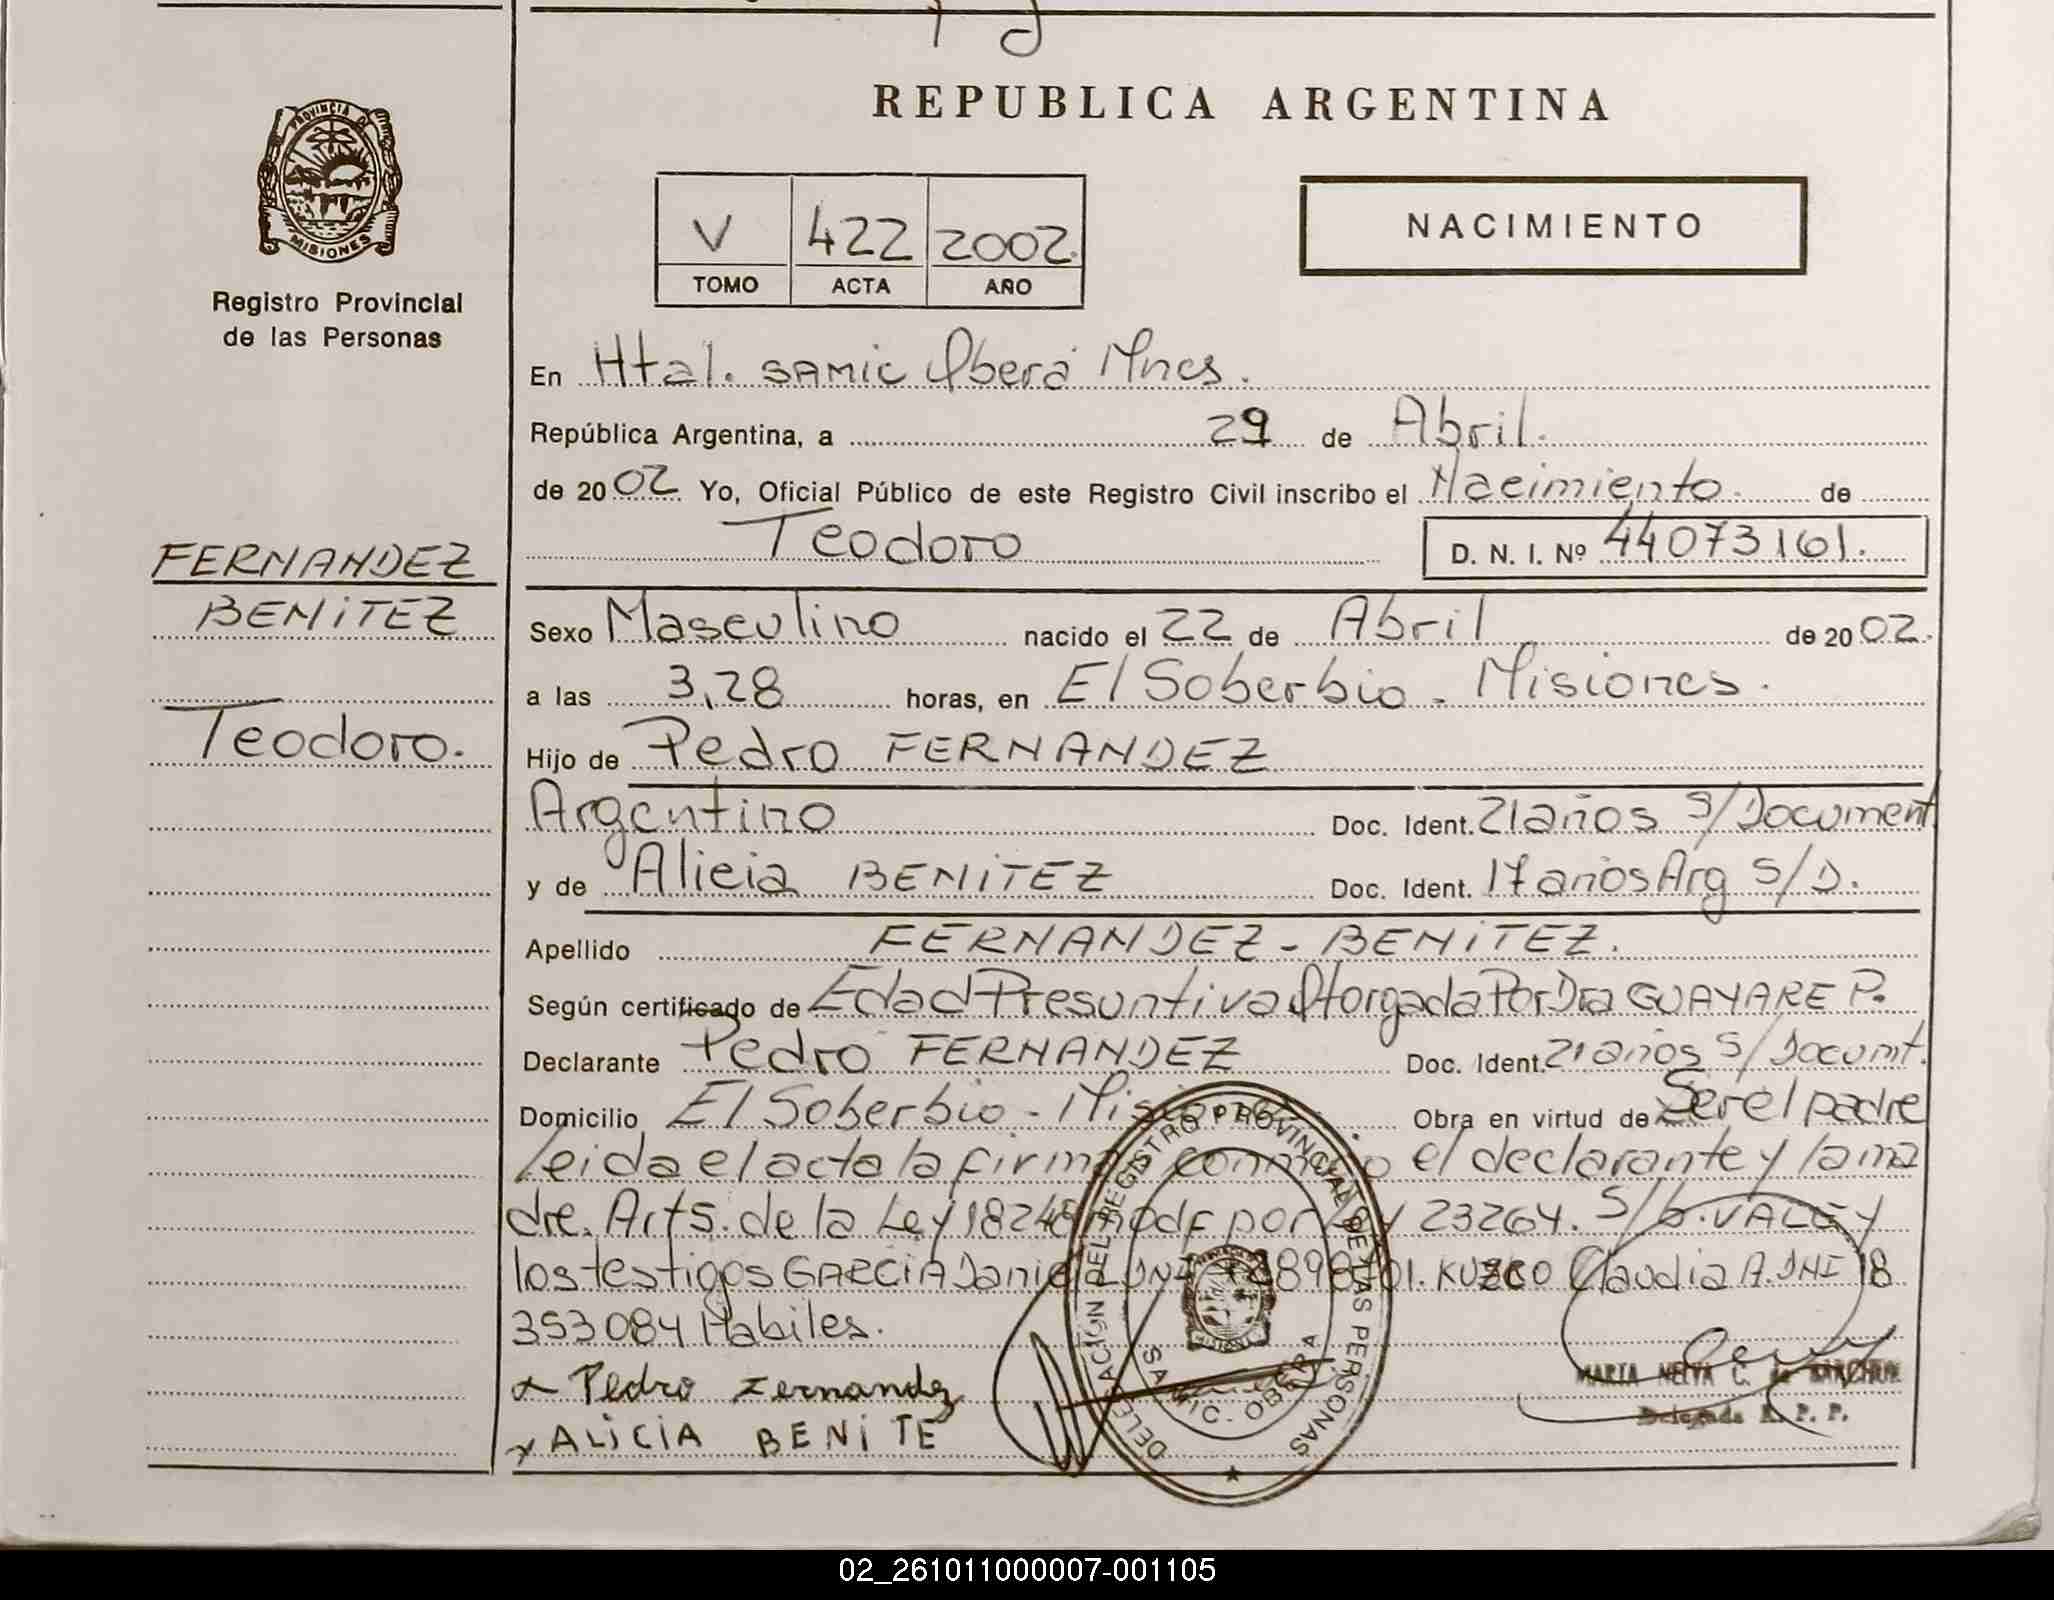 REPUBLICA ARGENTINA
PROVINCIA DE MISIONES
Registro Provincial
de las Personas
V 422 2002.
TOMO ACTA AÑO
NACIMIENTO
En Htal. SAMIC Oberá Mnes.
República Argentina, a 29 de Abril.
de 2002 Yo, Oficial Público de este Registro Civil inscribo el Nacimiento. de
Teodoro D. N. I. Nº 44073161.
FERNANDEZ
BENiTEZ
Teodoro.
Sexo Masculino nacido el 22 de Abril de 2002.
a las 3,28 horas, en El Soberbio - Misiones.
Hijo de Pedro FERNANDEZ
Argentino Doc. Ident. 21 años S/Document
y de Alicia BENiTEZ Doc. Ident. 17 años Arg S/D.
Apellido FERNANDEZ - BENiTEZ.
Según certificado de Edad Presuntiva Otorgada Por Dra GUAYARE P.
Declarante Pedro FERNANDEZ Doc. Ident. 21 años S/Documt.
Domicilio El Soberbio - Misiones Obra en virtud de Ser el padre
leida el acta la firma conmigo el declarante y la ma
dre. Arts. de la Ley 18248 modf por Ley 23264. S/b. VALE y
los testigos GARCiA Daniel L DNI KUZCO Claudia A. DNI 18
353 084 Habiles.
x Pedro Fernandez
x ALiCiA BENiTE
DELEGACIÓN DEL REGISTRO PROVINCIAL DE LAS PERSONAS
SAMIC. OBERA
MARIA NELVA C. de
Delegada R. P. P.
02_261011000007-001105